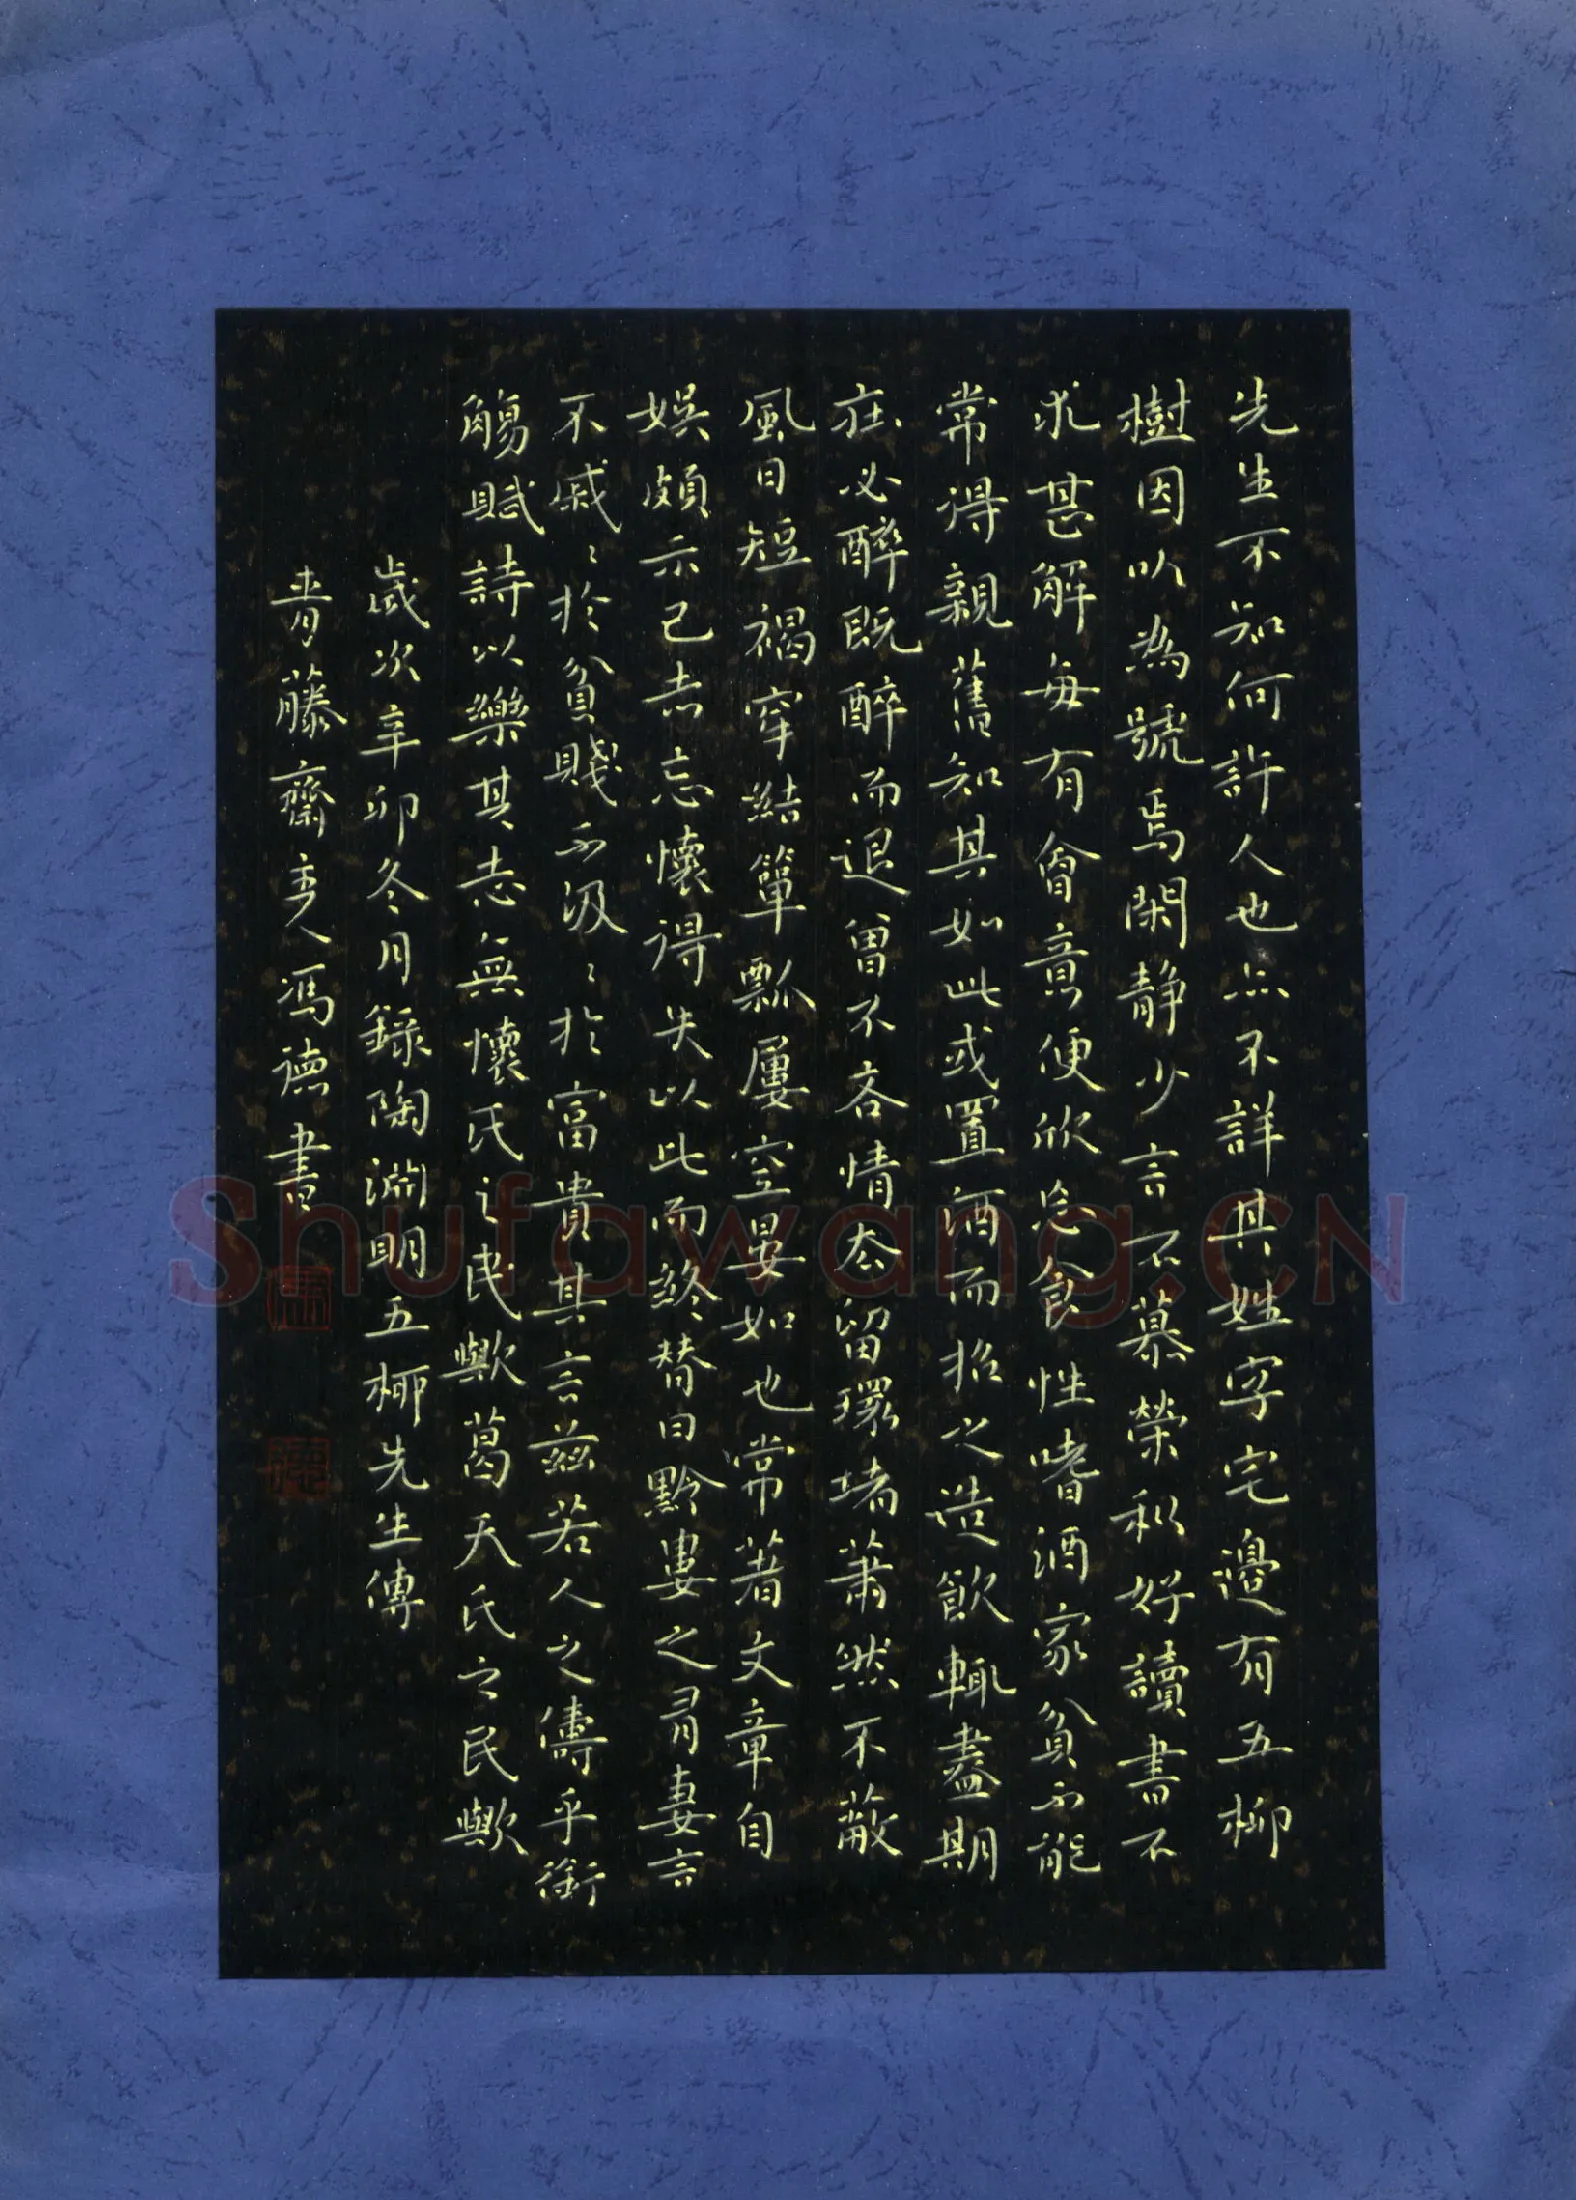 先生不知何許人也亦不詳其姓字宅邊有五柳
樹因以為號焉閑静少言不慕榮利好讀書不
求甚解每有會意便欣忘食性嗜酒家貧不能
常得親舊知其如此或置酒而招之造飲輒盡期
在必醉既醉而退曾不吝情去留環堵蕭然不蔽
風日短褐穿結簞瓢屢空晏如也常著文章自
娛頗示己志忘懷得失以此而終替曰黔婁之有妻言
不戚〻於貧賤不汲〻於富貴其言茲若人之儔乎銜
觴賦詩以樂其志無懷氏之民歟葛天氏之民歟
歲次辛卯冬月錄陶淵明五柳先生傳
青藤齋主人馮德書
Shufawang.CN